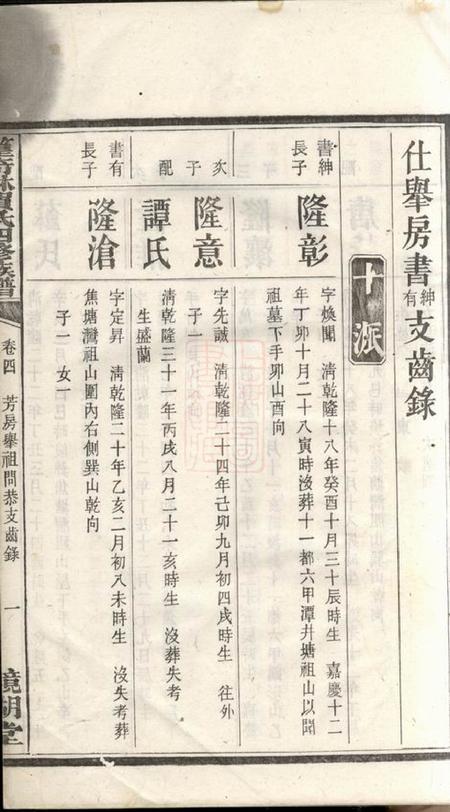 仕舉房書紳有支齒錄
十派
書紳長子
隆彰
字煥聞 清乾隆十八年癸酉十月三十辰時生 嘉慶十二
年丁卯十月二十八寅時沒葬十一都六甲潭井塘祖山以聞
祖墓下手卯山酉向
次子
隆意
字先誠 清乾隆二十四年己卯九月初四戌時生 往外
子一
配
譚氏
清乾隆三十一年丙戌八月二十一亥時生 沒葬失考
生盛蘭
書有長子
隆滄
字定昇 清乾隆二十年乙亥二月初八未時生 沒失考葬
焦塘灣祖山圍內右側巽山乾向
子一 女一
氏四修族譜
卷四 芳房舉祖問恭支齒錄 一
鏡湖堂